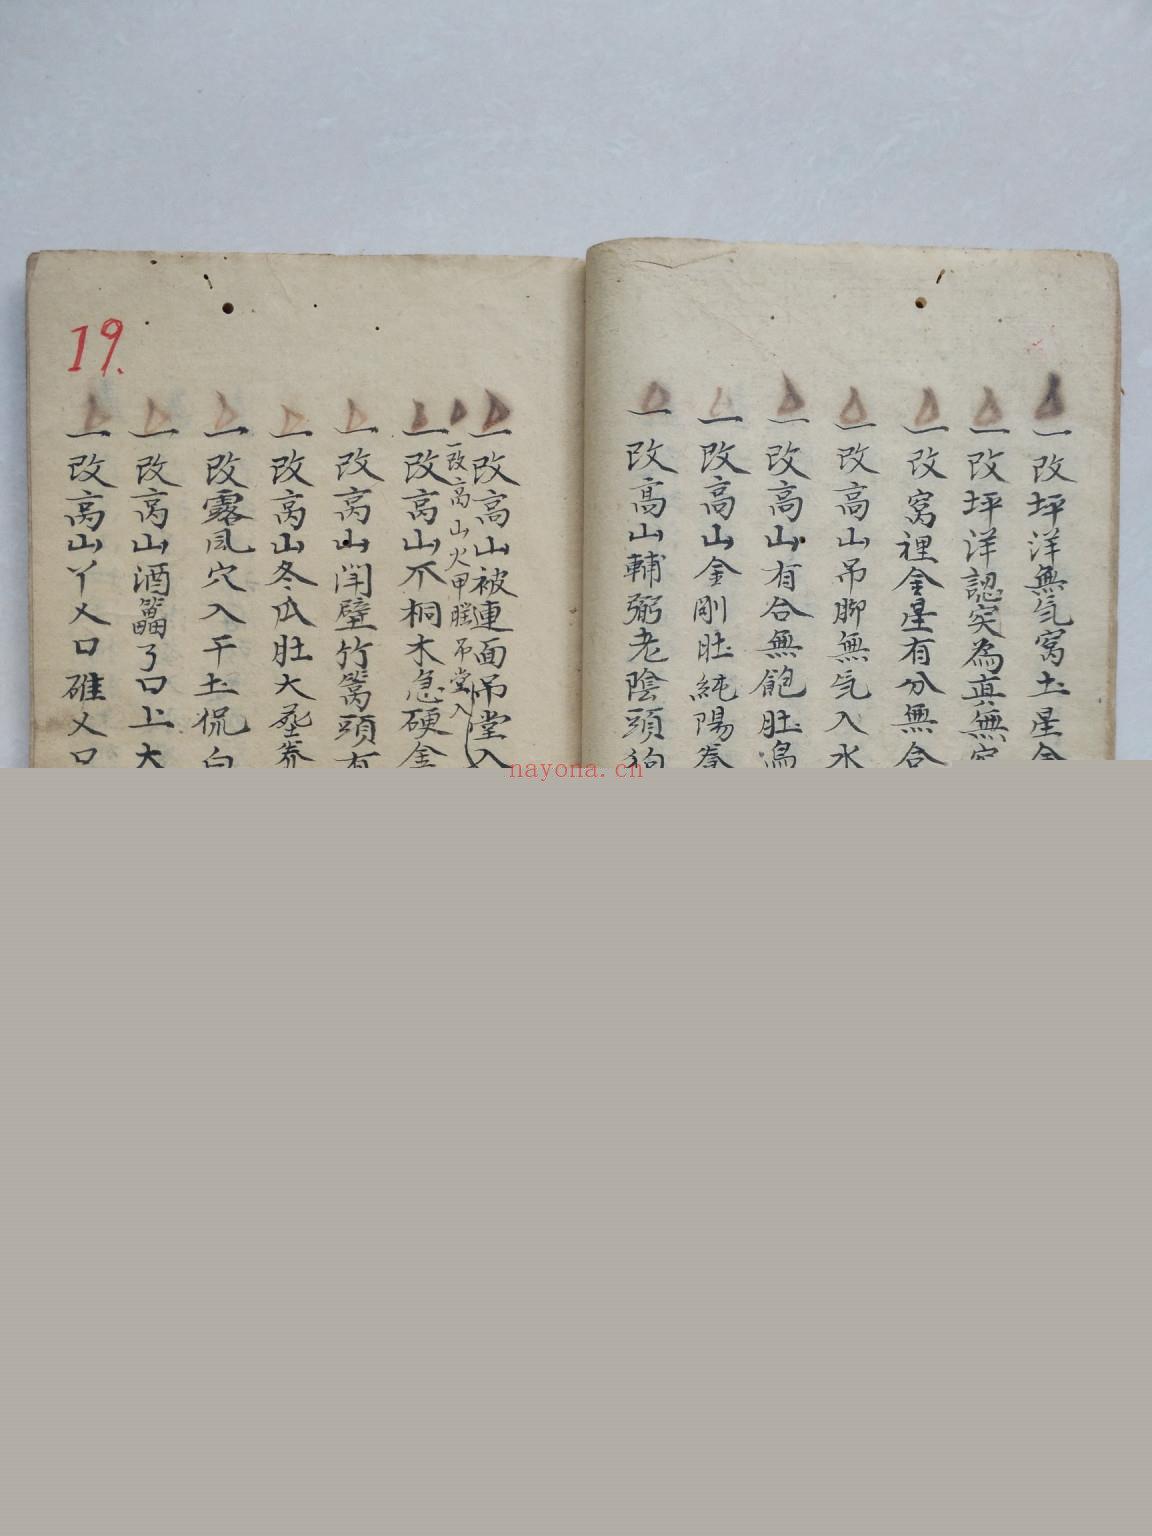 一改坪洋無気窩土星金
一改坪洋認突為真無窩
一改窩裡金星有分無合
一改高山吊脚無気入水
一改高山有合無飽肚
一改高山金剛肚純陽
一改高山輔弼老陰頭
一改高山被連面吊堂入
一改高山火甲吊堂入
一改高山不桐木急硬金
一改高山壁竹篙頭有
一改高山冬瓜肚大
一改露風穴入干土侃白
一改高山酒了口上大
一改高山丫乂口碓乂口
19.
nayona.cn